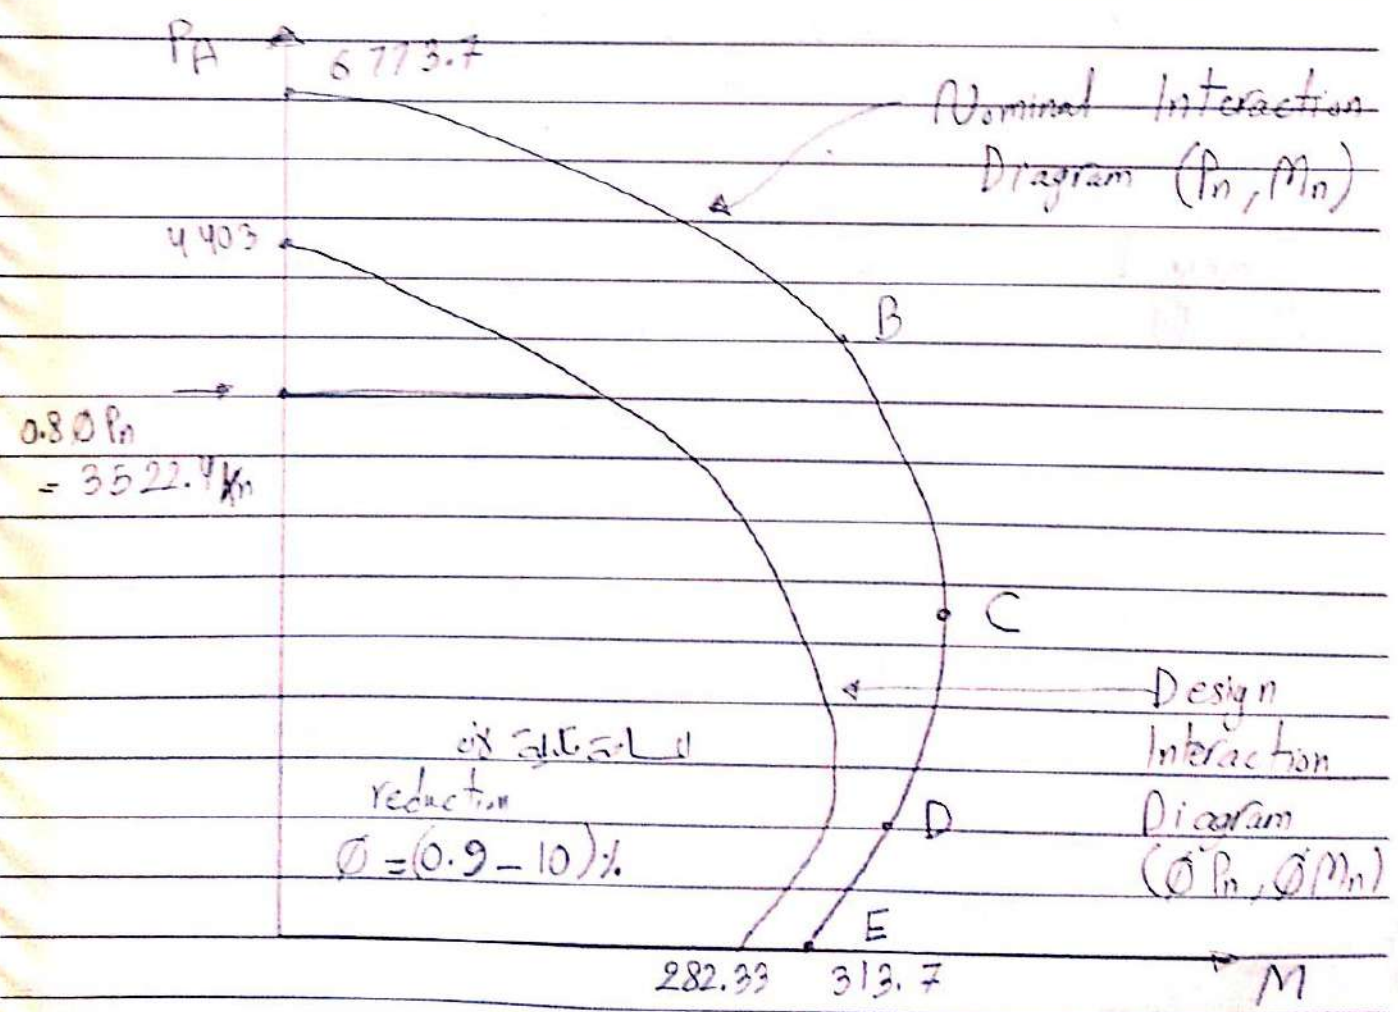 PA
6773.7
Nominal Interaction
Diagram (Pn, Mn)
4403
B
0.8 Ø Pn
= 3522.4 Kn
C
Design
Interaction
Diagram
(Ø Pn, Ø Mn)
reduction
Ø = (0.9 - 10)%
D
E
282.33
313.7
M